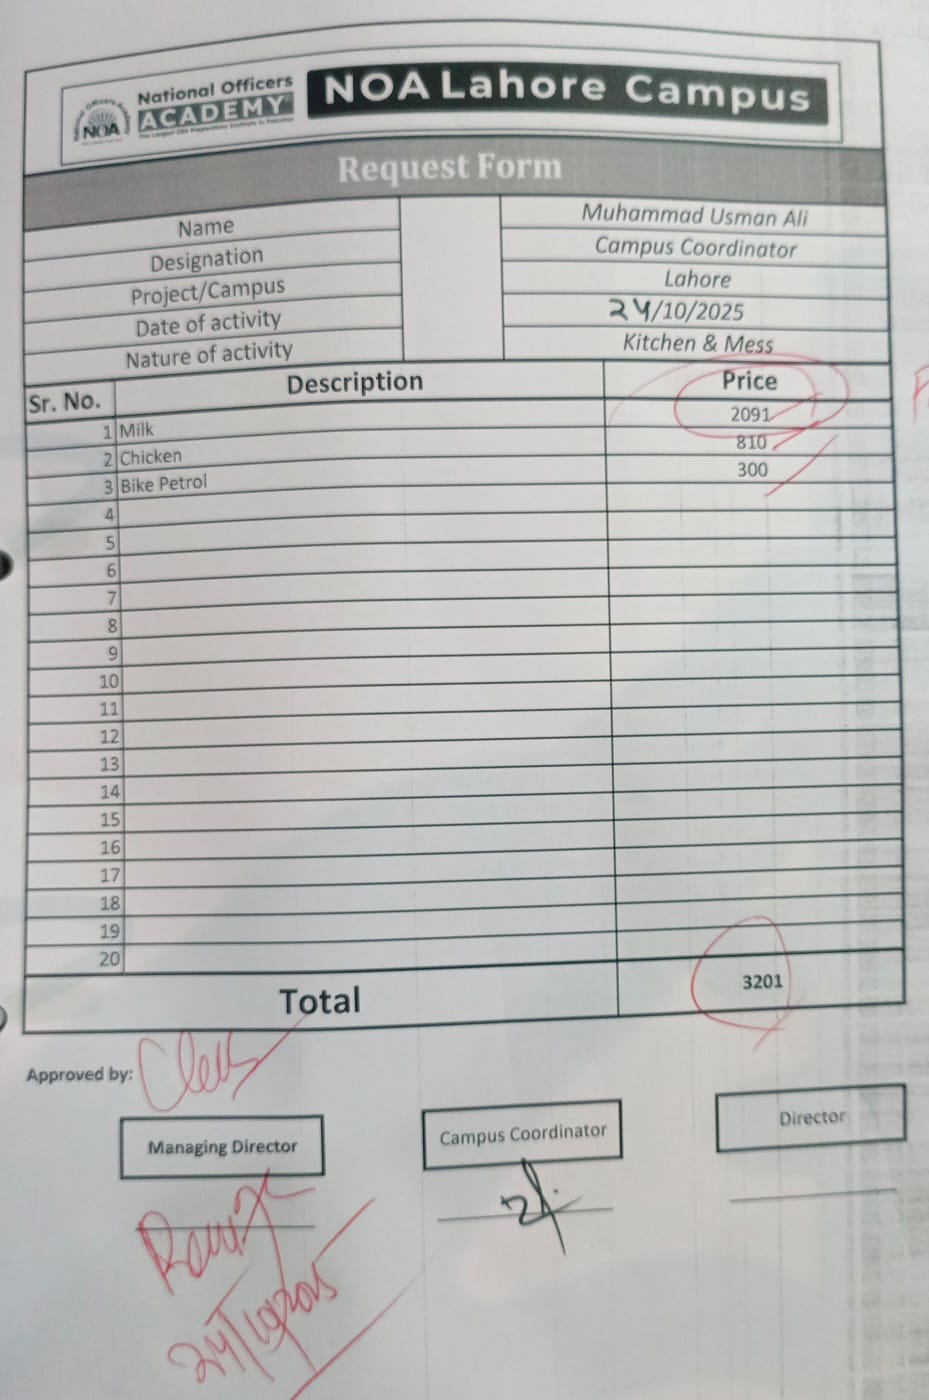 National Officers
ACADEMY
The Largest CSS Preparatory Institute in Pakistan
NOA
NOA Lahore Campus
Request Form
Name Muhammad Usman Ali
Designation Campus Coordinator
Project/Campus Lahore
Date of activity 24/10/2025
Nature of activity Kitchen & Mess
Sr. No. Description Price
1 Milk 2091
2 Chicken 810
3 Bike Petrol 300
4
5
6
7
8
9
10
11
12
13
14
15
16
17
18
19
20
Total 3201
Approved by:
Managing Director Campus Coordinator Director
24/10/2025